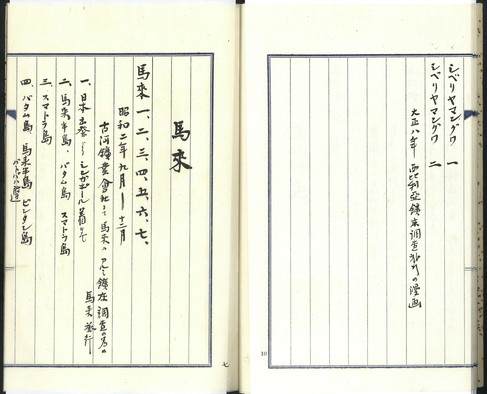 シベリヤマンガワ 一
シベリヤマンガワ 二
大正八年 西比利亜鉱床調査旅行の漫画
10
馬來
馬來 一、二、三、四、五、六、七、
昭和二年九月―十二月
古河鑛業會社にて馬來のアルミ鑛床調査の為め
馬來旅行
一、日本出發シンガポール着まで
二、馬來半島、バタム島 スマトラ島
三、スマトラ島
四、バタム島 馬来半島 ビンタン島
七